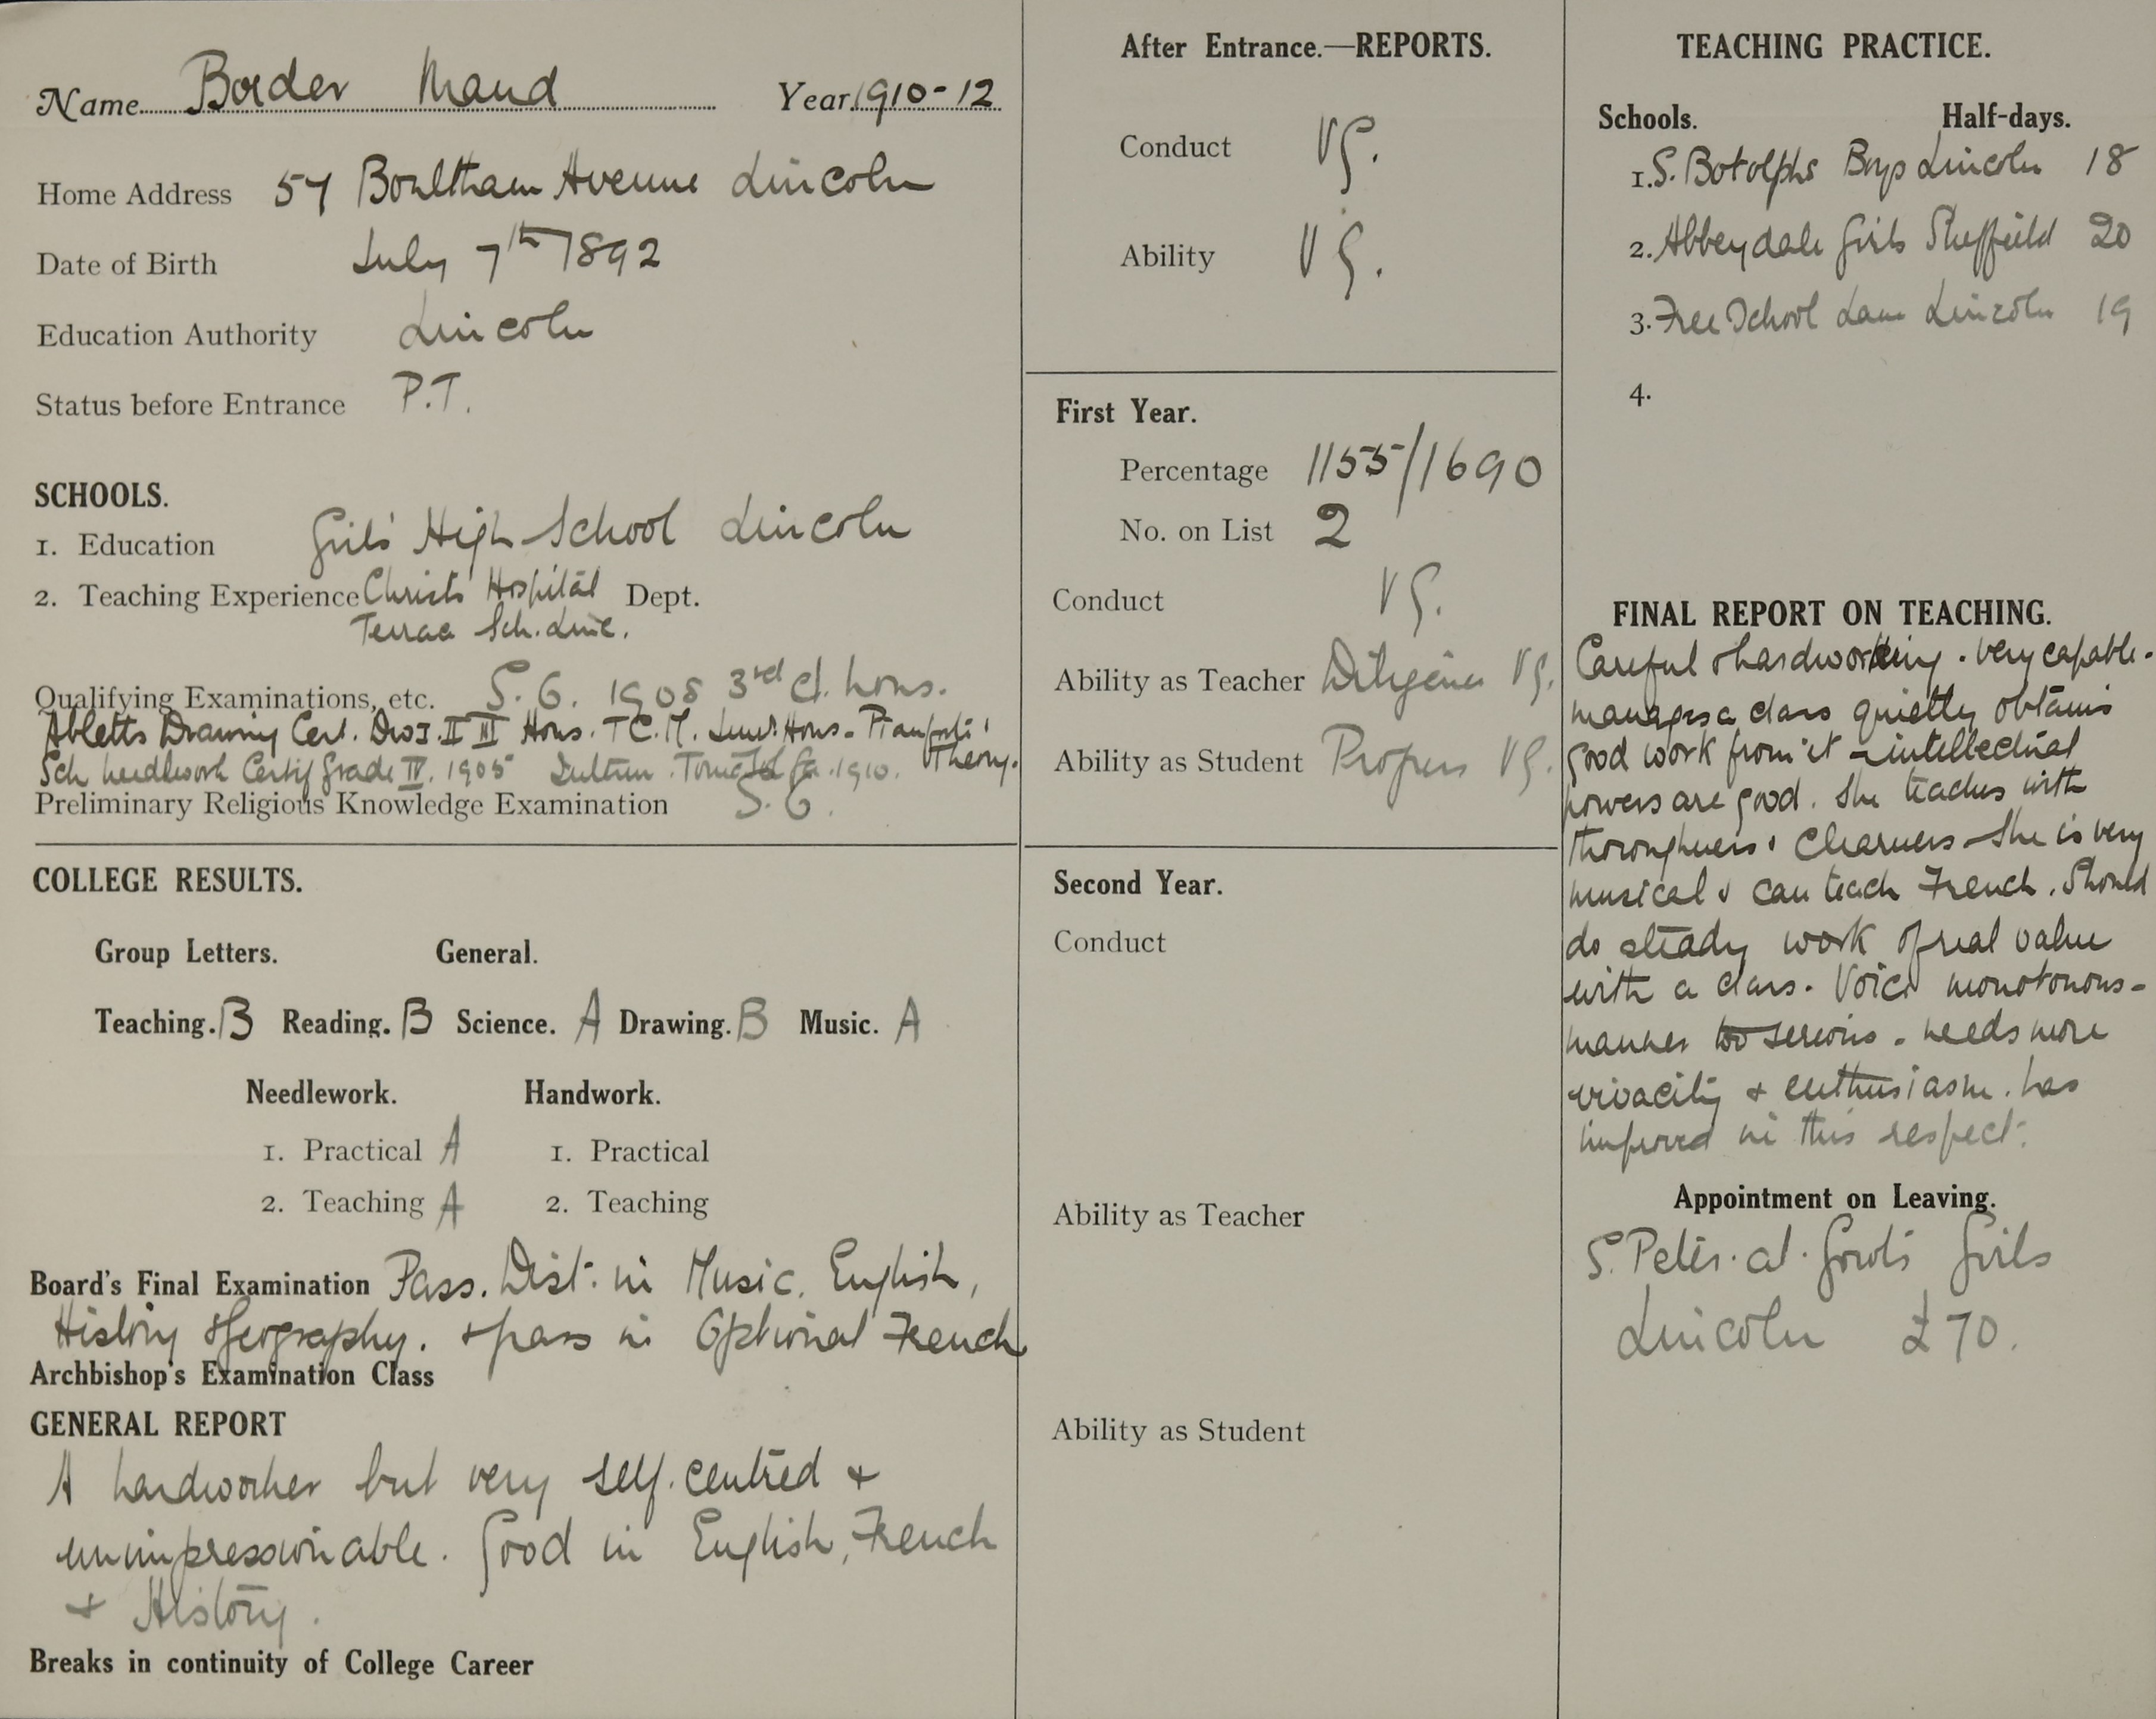 Name Border Maud Year 1910-12
Home Address 57 Boultham Avenue Lincoln
Date of Birth July 7th 1892
Education Authority Lincoln
Status before Entrance P.T.
SCHOOLS.
1. Education Girls' High School Lincoln
2. Teaching Experience Christs Hospital Dept.
Terrace Sch. Linc.
Qualifying Examinations, etc. S.C. 1908 3rd cl. hons.
Abletts Drawing Cert. Divs I. II III Hons. T.C.M. Hons. Pianofte'
Sch needlework Certif Grade IV. 1905 1910. Theory.
Preliminary Religious Knowledge Examination S.C.
COLLEGE RESULTS.
Group Letters. General.
Teaching. B Reading. B Science. A Drawing. B Music. A
Needlework. Handwork.
1. Practical A 1. Practical
2. Teaching A 2. Teaching
Board's Final Examination Pass. Dist: in Music. English,
History & Geography. & pass in Optional French
Archbishop's Examination Class
GENERAL REPORT
A hardworker but very self-centred &
unimpressionable. Good in English, French
& History.
Breaks in continuity of College Career
After Entrance.—REPORTS.
Conduct VG.
Ability VG.
First Year.
Percentage 1155/1690
No. on List 2
Conduct VG.
Ability as Teacher Diligence VG.
Ability as Student Progress VG.
Second Year.
Conduct
Ability as Teacher
Ability as Student
TEACHING PRACTICE.
Schools. Half-days.
1. S. Botolphs Boys Lincoln 18
2. Abbeydale Girls Sheffield 20
3. Free School Lane Lincoln 19
4.
FINAL REPORT ON TEACHING.
Careful & hardworking. very capable-
manages a class quietly obtains
good work from it - intellectual
powers are good. She teaches with
thoroughness & clearness - She is very
musical & can teach French. Should
do steady work of real value
with a class. Voice monotonous-
manner too serious - needs more
vivacity & enthusiasm. has
improved in this respect.
Appointment on Leaving.
S. Peter-at-Gowts Girls
Lincoln £70.